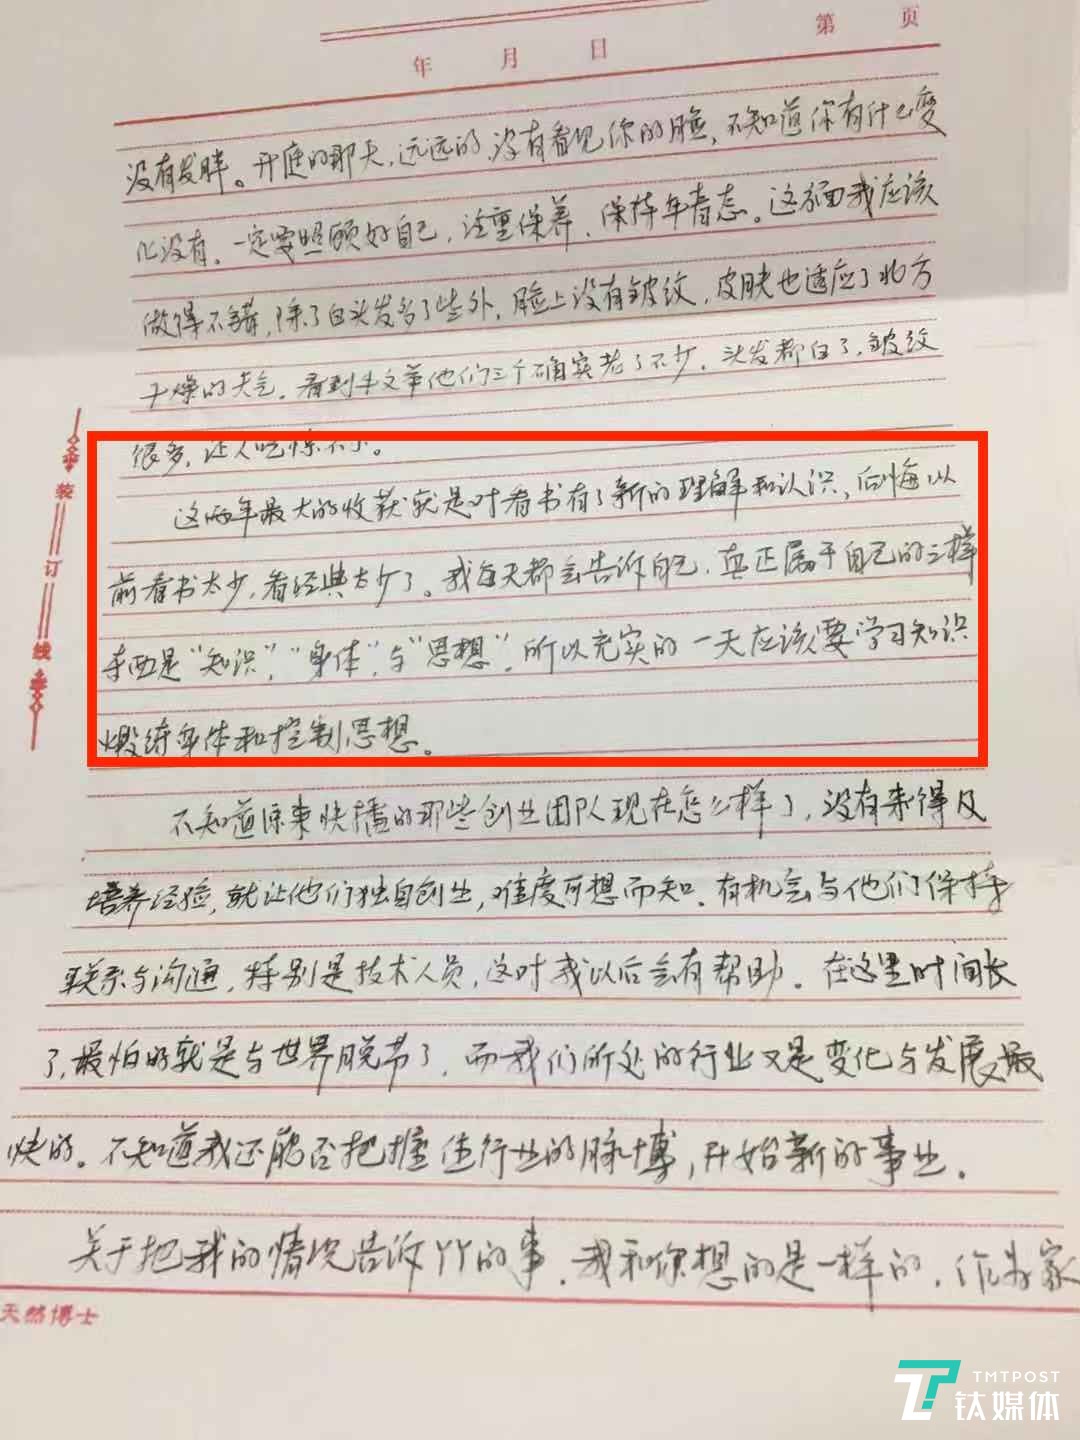 第 页
年 月 日
没有发胖。开庭的那天,远远的,没有看见你的脸,不知道你有什么变
化没有,一定要照顾好自己,注重保养,保持年青态。这方面我应该
做得不错,除了白头发多了些外,脸上没有皱纹,皮肤也适应了北方
干燥的天气。看到牛文举他们三个确实老了不少,头发都白了,皱纹
很多,让人吃惊不小。
这两年最大的收获就是对看书有了新的理解和认识,后悔以
前看书太少,看经典太少了。我每天都会告诉自己,真正属于自己的三样
东西是“知识”,“身体”与“思想”,所以充实的一天应该要学习知识
煅练身体和控制思想。
不知道原来快播的那些创业团队现在怎么样了,没有来得及
培养经验,就让他们独自创业,难度可想而知。有机会与他们保持
联系与沟通,特别是技术人员,这对我以后会有帮助。在这里时间长
了,最怕的就是与世界脱节了,而我们所处的行业又是变化与发展最
快的。不知道我还能否把握住行业的脉博,开始新的事业。
关于把我的情况告诉丫丫的事,我和你想的是一样的,作为家
装订线
天然博士
TMTPOST
钛媒体